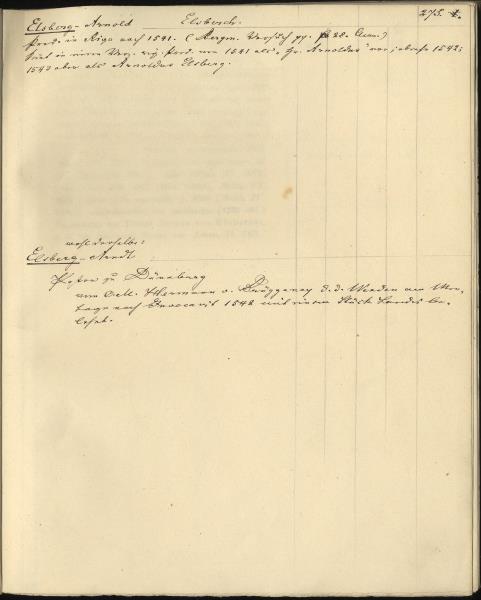 Elsberg - Arnold Elsberch. 275. a.
Pred. in Riga nach 1541. (Bergm. Versuch pp. 28. Anm.)
einem Verz. rig. Pred. von 1541 als "Hr. Arnoldus" vor; ebenso 1542;
1543 aber als Arnoldus Elsberg.
wohl derselbe:
Elsberg - Arndt
Pastor zu Dünaburg
vom O.M. Hermann v. Brüggeney d. d. Wenden am Mon-
tage nach Invocavit 1548 mit einem Stück Landes be-
lehnt.